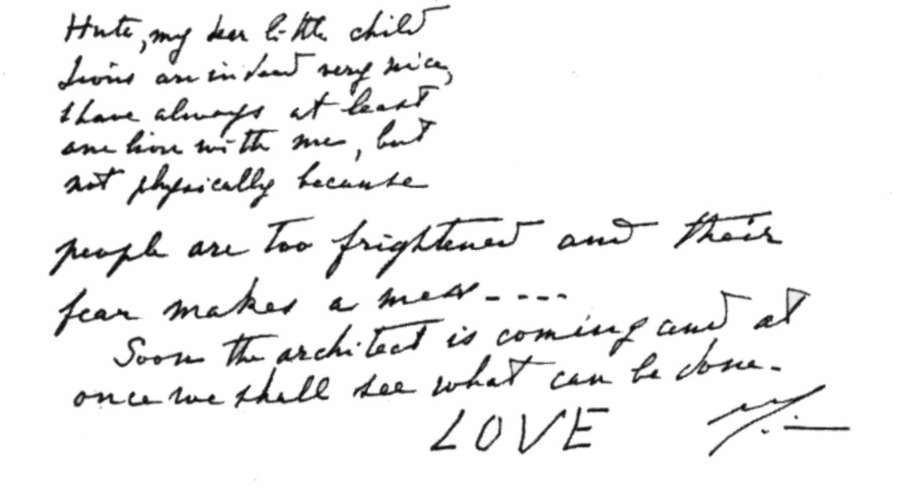 Huta, my dear little child
Lions are indeed very nice,
I have always at least
one lion with me, but
not physically because
people are too frightened and their
fear makes a mess ----
Soon the architect is coming and at
once we shall see what can be done.
LOVE